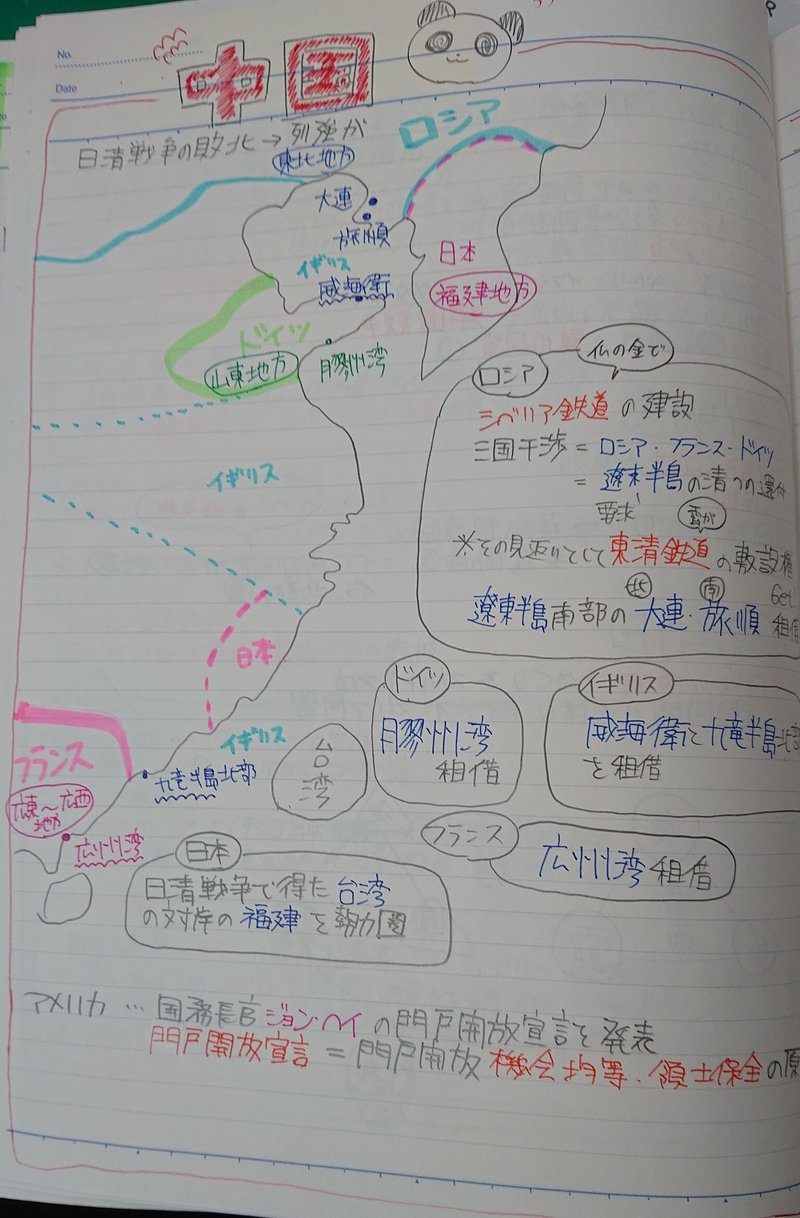 No.
Date
中国
日清戦争の敗北→列強が
東北地方
ロシア
大連
旅順
イギリス
威海衛
日本
福建地方
ドイツ
山東地方
膠州湾
ロシア
仏の金で
シベリア鉄道の建設
三国干渉=ロシア・フランス・ドイツ
=遼東半島の清への還付
要求
露が
※その見返りとして東清鉄道の敷設権
Get!
北 南
遼東半島南部の大連・旅順 租借
イギリス
日本
フランス
広東〜広西
地方
広州湾
イギリス
九竜半島北部
台湾
ドイツ
膠州湾
租借
イギリス
威海衛と九竜半島北部
を租借
フランス
広州湾 租借
日本
日清戦争で得た台湾
の対岸の福建を勢力圏
アメリカ…国務長官ジョン・ヘイの門戸開放宣言を発表
門戸開放宣言=門戸開放 機会均等・領土保全の原